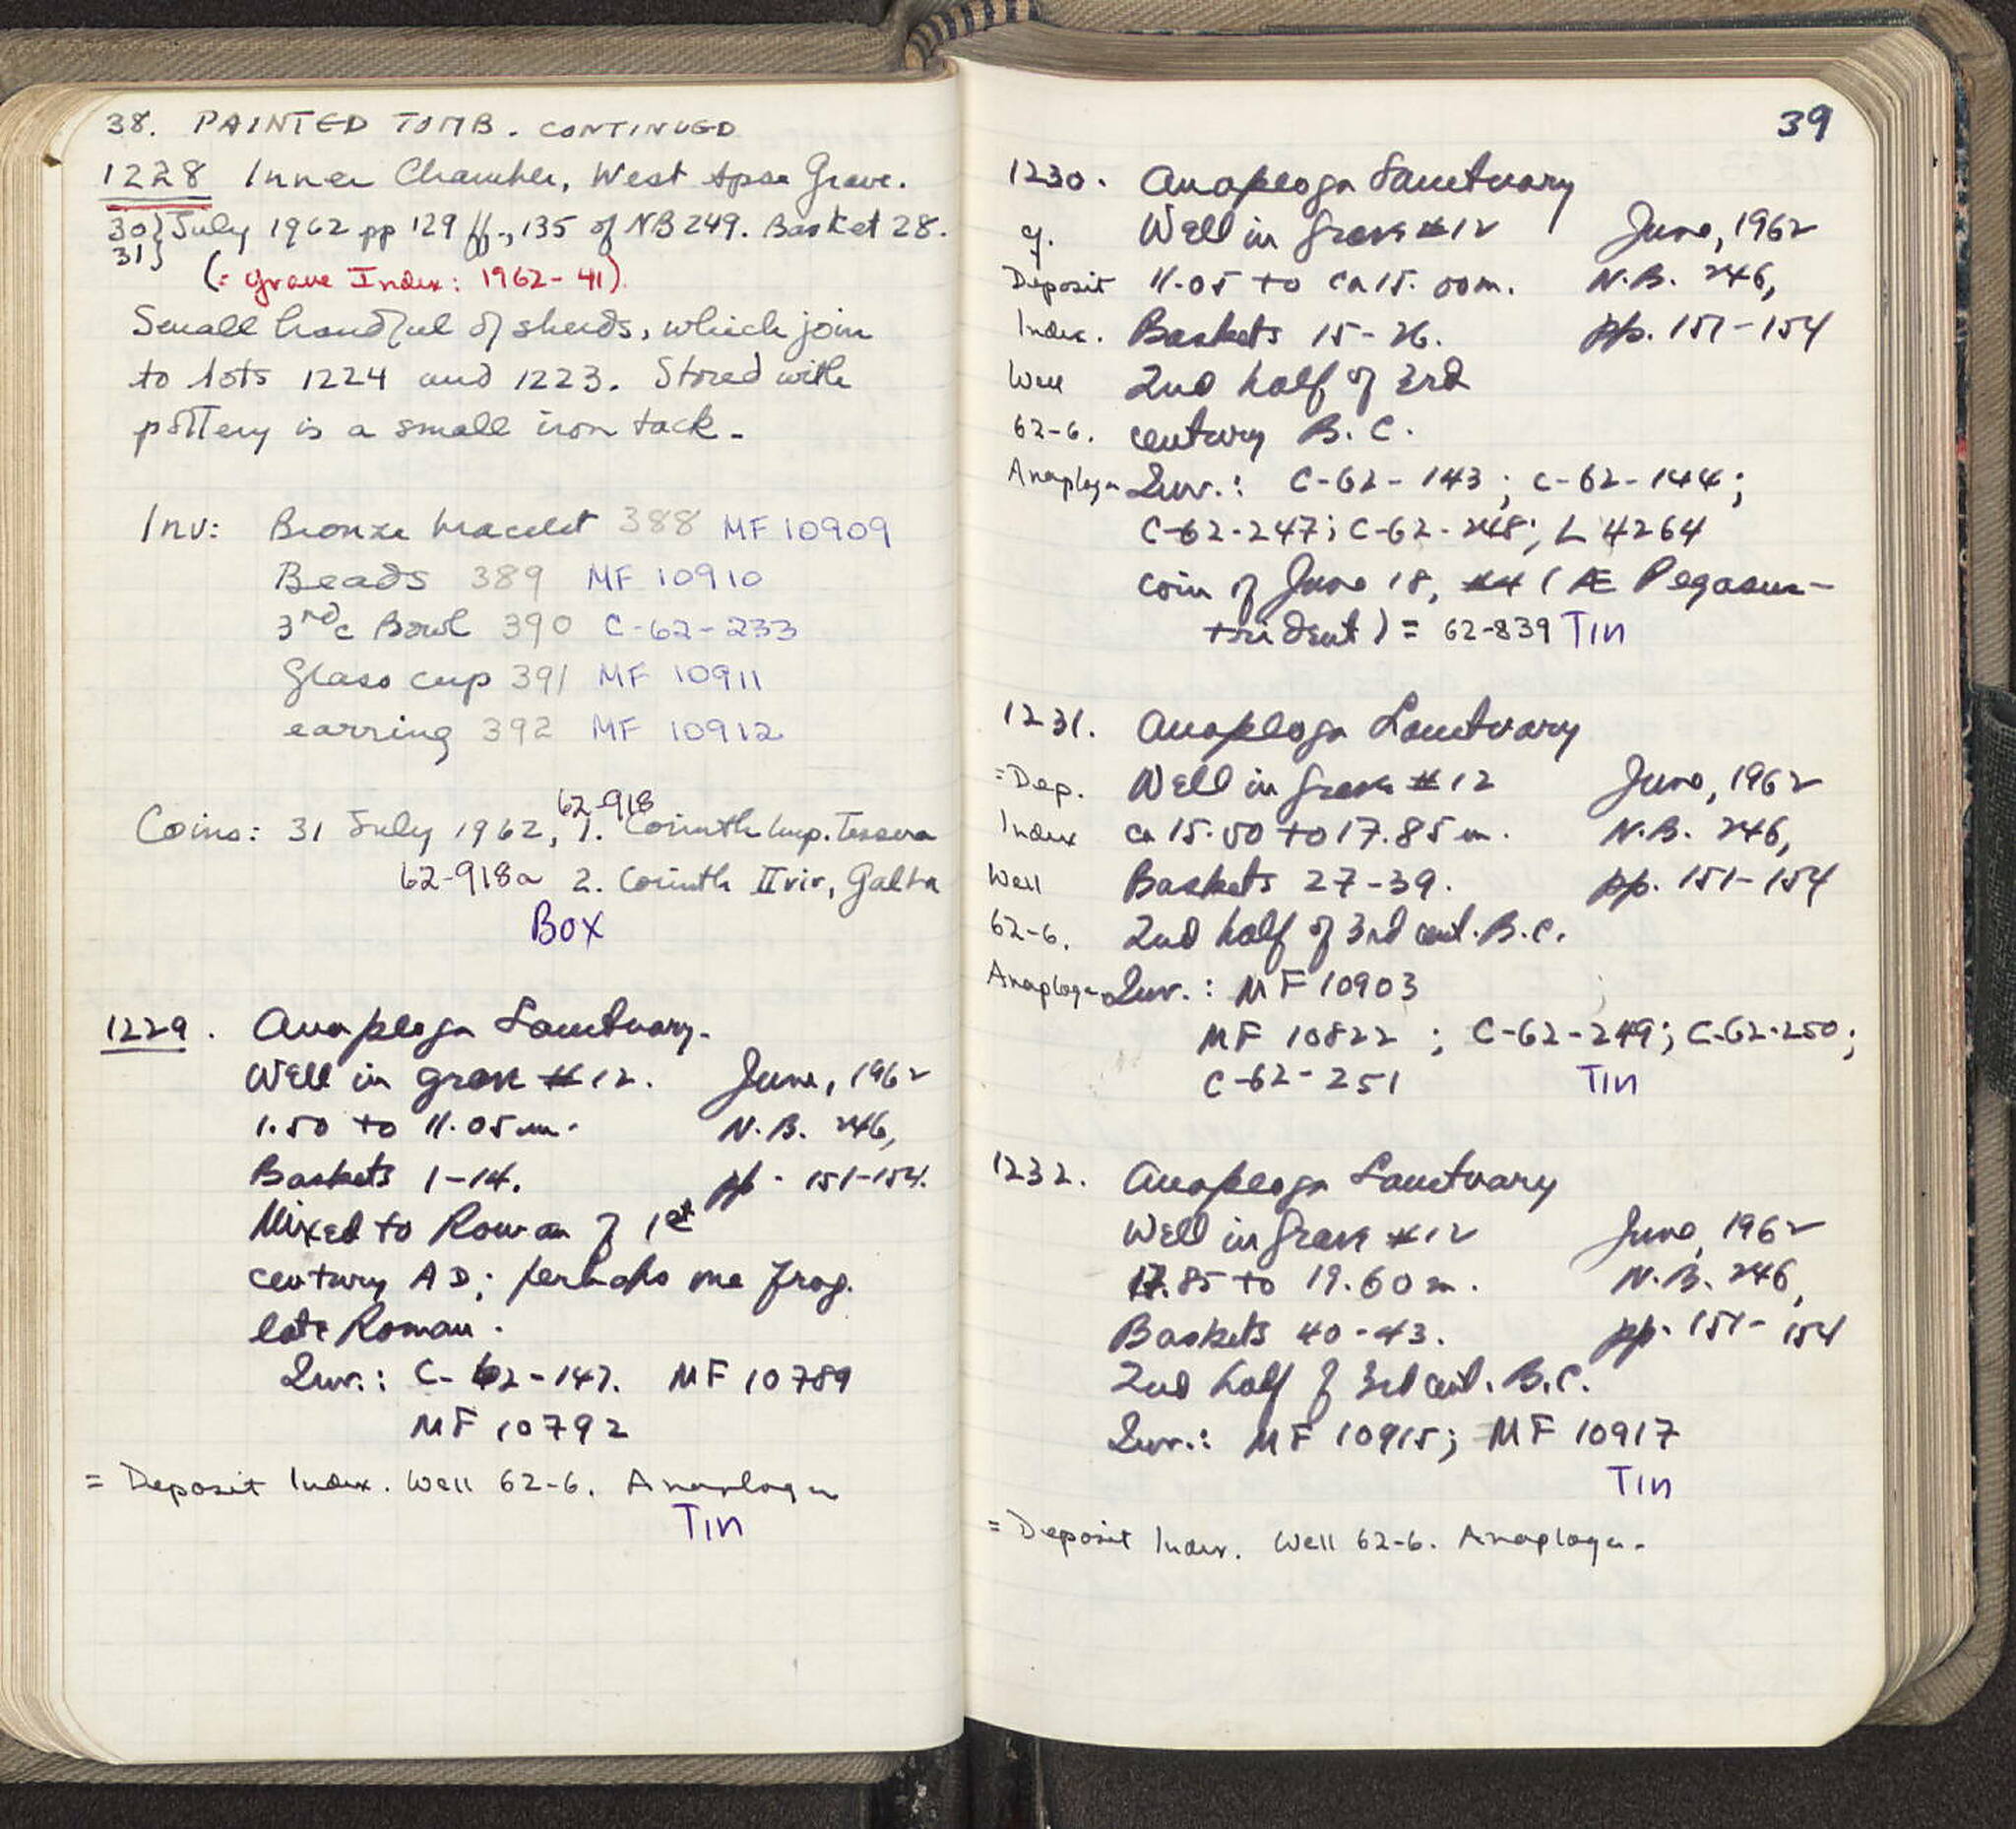 38. PAINTED TOMB. CONTINUED
1228 Inner Chamber, West Apse Grave.
30} July 1962 pp 129 ff., 135 of NB 249. Basket 28.
31}
(= Grave Index: 1962-41)
Small handful of sherds, which join
to lots 1224 and 1223. Stored with
pottery is a small iron tack.
Inv: Bronze bracelet 388 MF 10909
Beads 389 MF 10910
3rd c Bowl 390 C-62-233
Glass cup 391 MF 10911
earring 392 MF 10912
62-918
Coins: 31 July 1962, 1. Corinth Imp. Tessera
62-918a 2. Corinth IIvir, Galba
BOX
1229. Anaploga Sanctuary.
Well in grave #12. June, 1962
1.50 to 11.05 m. N.B. 246,
Baskets 1-14. pp. 151-154.
Mixed to Roman of 1st
century AD; perhaps one frag.
late Roman.
Inv.: C-62-147. MF 10789
MF 10792
= Deposit Index. Well 62-6. Anaploga
TIN
39
1230. Anaploga Sanctuary
Well in Grave #12 June, 1962
Deposit 11.05 to ca 15.00 m. N.B. 246,
Index. Baskets 15-26. pp. 151-154
Well 2nd half of 3rd
62-6. century B.C.
Anaploga Inv.: C-62-143; C-62-144;
C-62-247; C-62-248; L 4264
coin of June 18, #4 (Æ Pegasus-
trident) = 62-839 TIN
1231. Anaploga Sanctuary
=Dep. Well in Grave #12 June, 1962
Index ca 15.00 to 17.85 m. N.B. 246,
Well Baskets 27-39. pp. 151-154
62-6. 2nd half of 3rd cent. B.C.
Anaploga Inv.: MF 10903
MF 10822 ; C-62-249; C-62-250;
C-62-251 TIN
1232. Anaploga Sanctuary
Well in Grave #12 June, 1962
17.85 to 19.60 m. N.B. 246,
Baskets 40-43. pp. 151-154
2nd half of 3rd cent. B.C.
Inv.: MF 10915; MF 10917
TIN
= Deposit Index. Well 62-6. Anaploga.